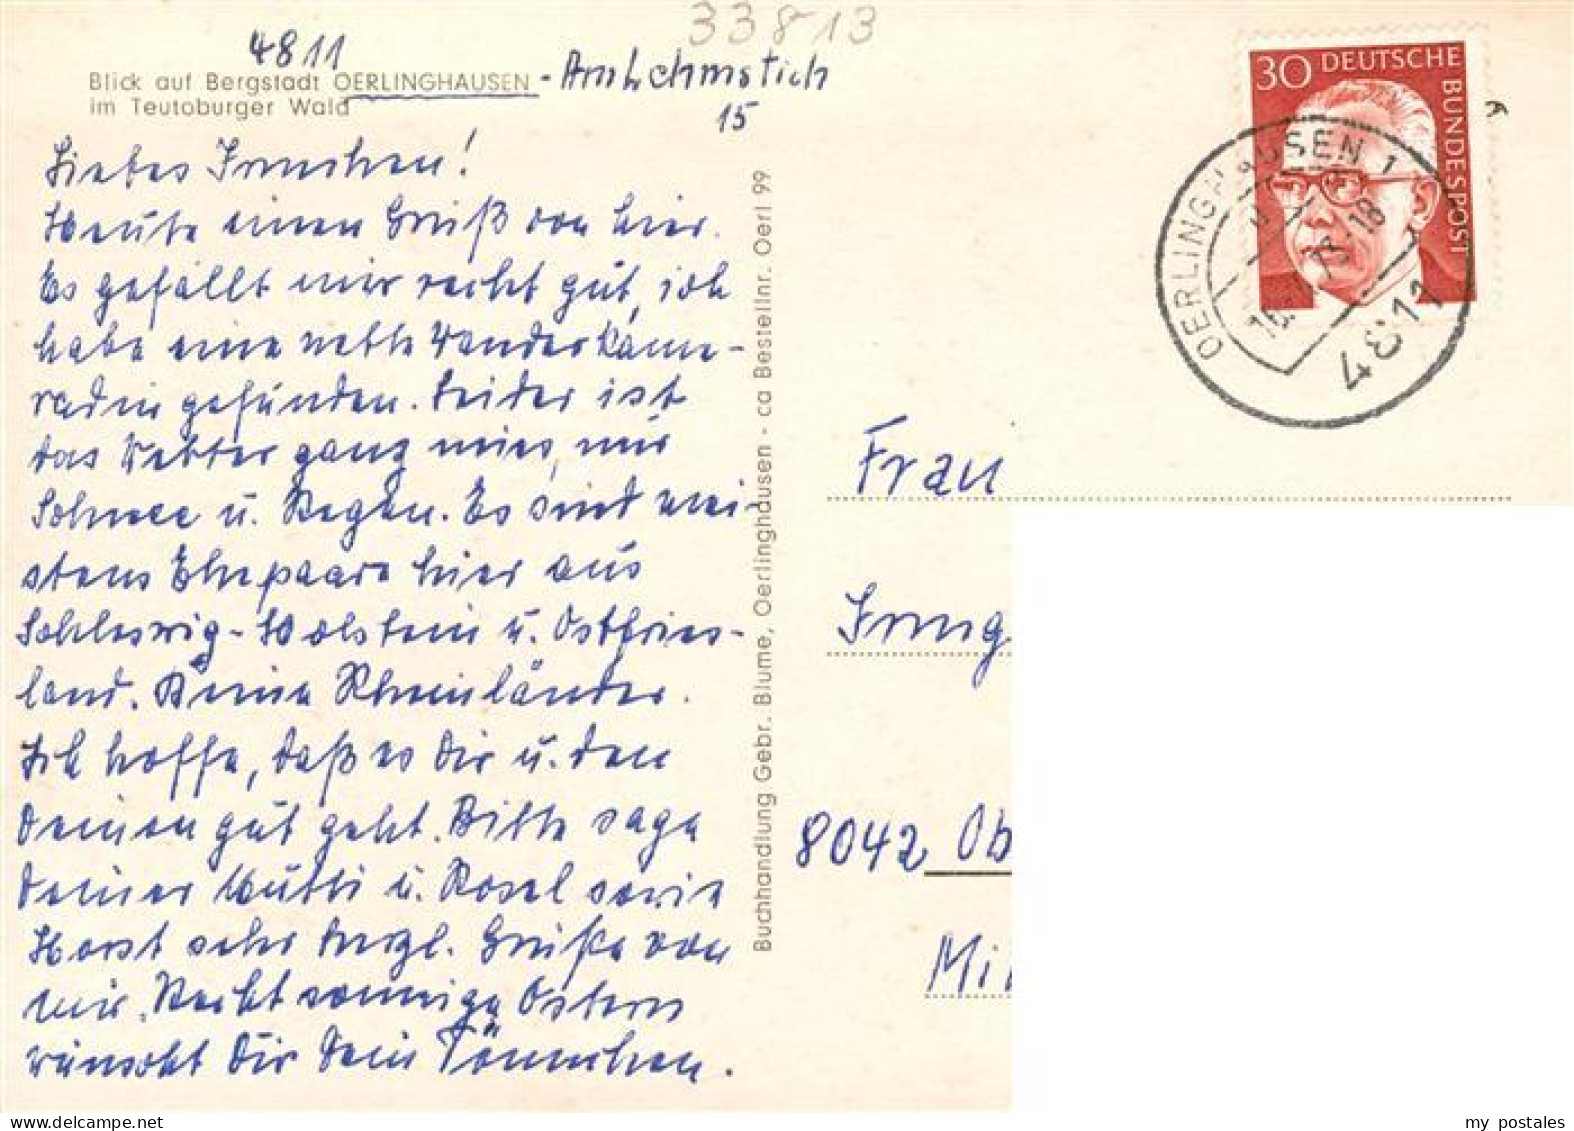 33813
4811
Blick auf Bergstadt OERLINGHAUSEN -
im Teutoburger Wald
15
Liebes Irmchen!
Heute einen Gruß von hier.
Es gefällt mir recht gut, ich
habe eine nette Wanderkame-
radin gefunden. Leider ist
das Wetter ganz mies, nur
Schnee u. Regen. Es sind mei-
stens Ehepaare hier aus
Schleswig-Holstein u. Ostfries-
land. Keine Rheinländer.
Ich hoffe, daß es Dir u. den
Deinen gut geht. Bitte sage
Deiner Mutti u. Rosel sowie
Horst sehr herzl. Grüße von
mir. Recht sonnige Ostern
wünscht Dir Dein Tönnchen.
Buchhandlung Gebr. Blume, Oerlinghausen - ca Bestellnr. Oerl 99
30 DEUTSCHE
BUNDESPOST
OERLINGHAUSEN 1
4811
Frau
Irmg
8042 Ob
Mi
my postales